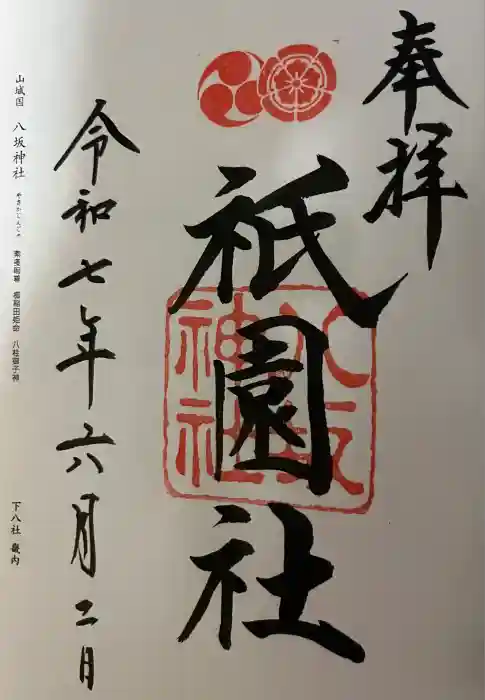 奉拝
祇園社
八坂
神社
令和七年六月二日
山城国 八坂神社 やさかじんじゃ 素戔嗚尊 櫛稲田姫命 八柱御子神
下八社 畿内